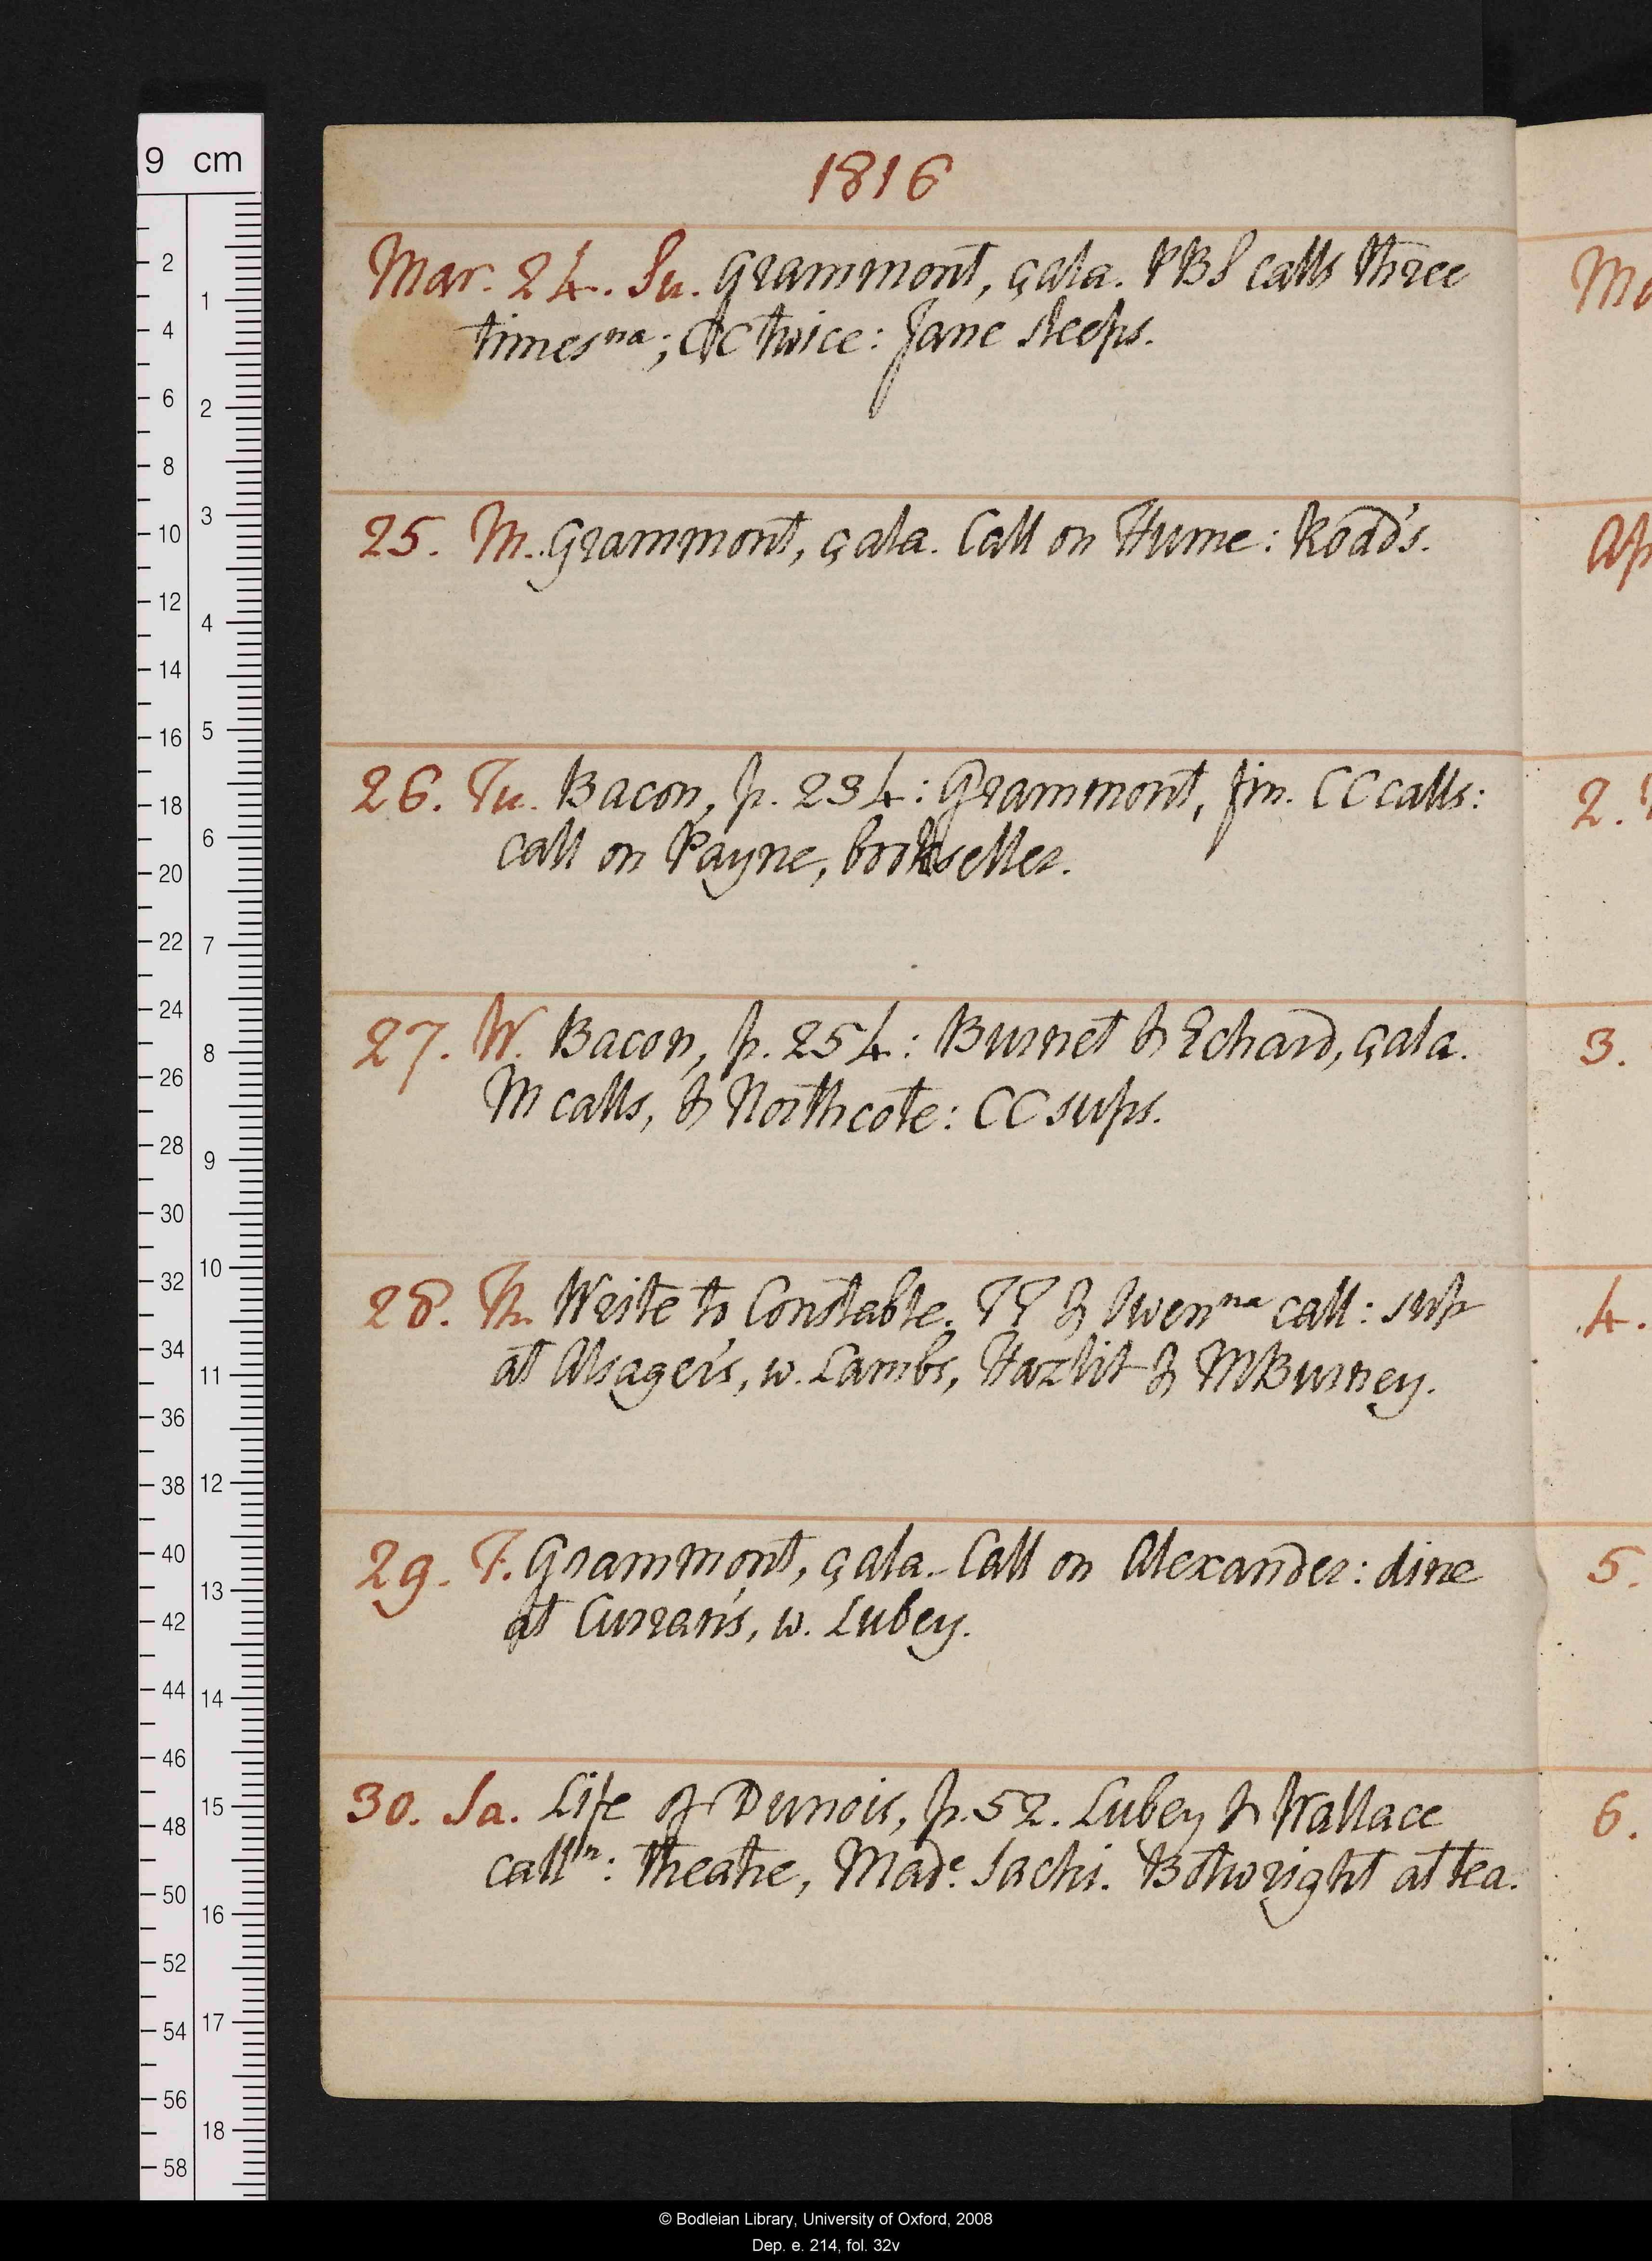 1816
Mar. 24. Su. Grammont, çala. PBS calls three
times na; CC twice: Jane sleeps.
25. M. Grammont, çala. Call on Hume: Road's.
26. Tu. Bacon, p. 234: Grammont, fin. CC calls:
call on Payne, bookseller.
27. W. Bacon, p. 254: Burnet & Echard, çala.
M calls, & Northcote: CC sups.
28. Th. Write to Constable. TT & Owen na call: sup
at Alsager's, w. Lambs, Hazlit & MBurney.
29. F. Grammont, çala. Call on Alexander: dine
at Curran's, w. Lubey.
30. Sa. Life of Dunois, p. 52. Lubey & Wallace
call n: theatre, Made. Sachi. Botwright at tea.
Ma
Ap
2.
3.
4.
5.
6.
9 cm
2 4 6 8 10 12 14 16 18 20 22 24 26 28 30 32 34 36 38 40 42 44 46 48 50 52 54 56 58
1 2 3 4 5 6 7 8 9 10 11 12 13 14 15 16 17 18
© Bodleian Library, University of Oxford, 2008
Dep. e. 214, fol. 32v